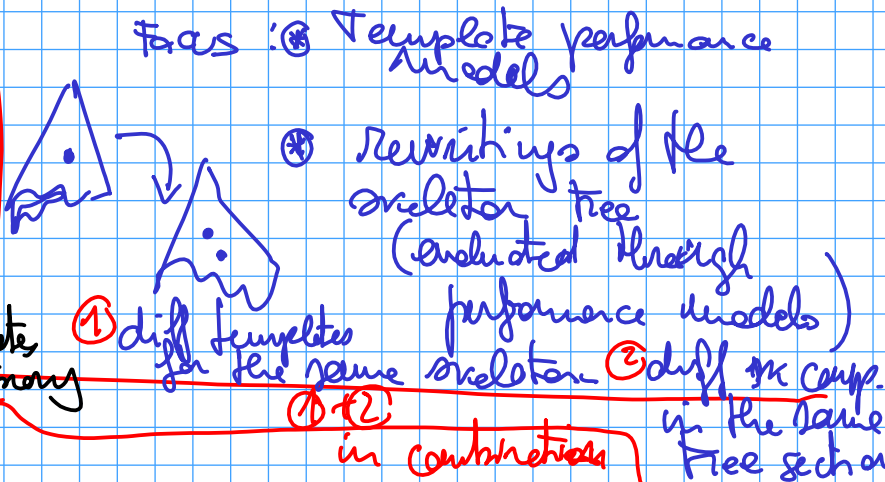 Focus : * Template performance
models
* rewritings of the
skeleton tree
(evaluated through
performance models)
① diff templates
for the same skeleton
② diff sk comp.
in the same
tree section
① + ②
in combination